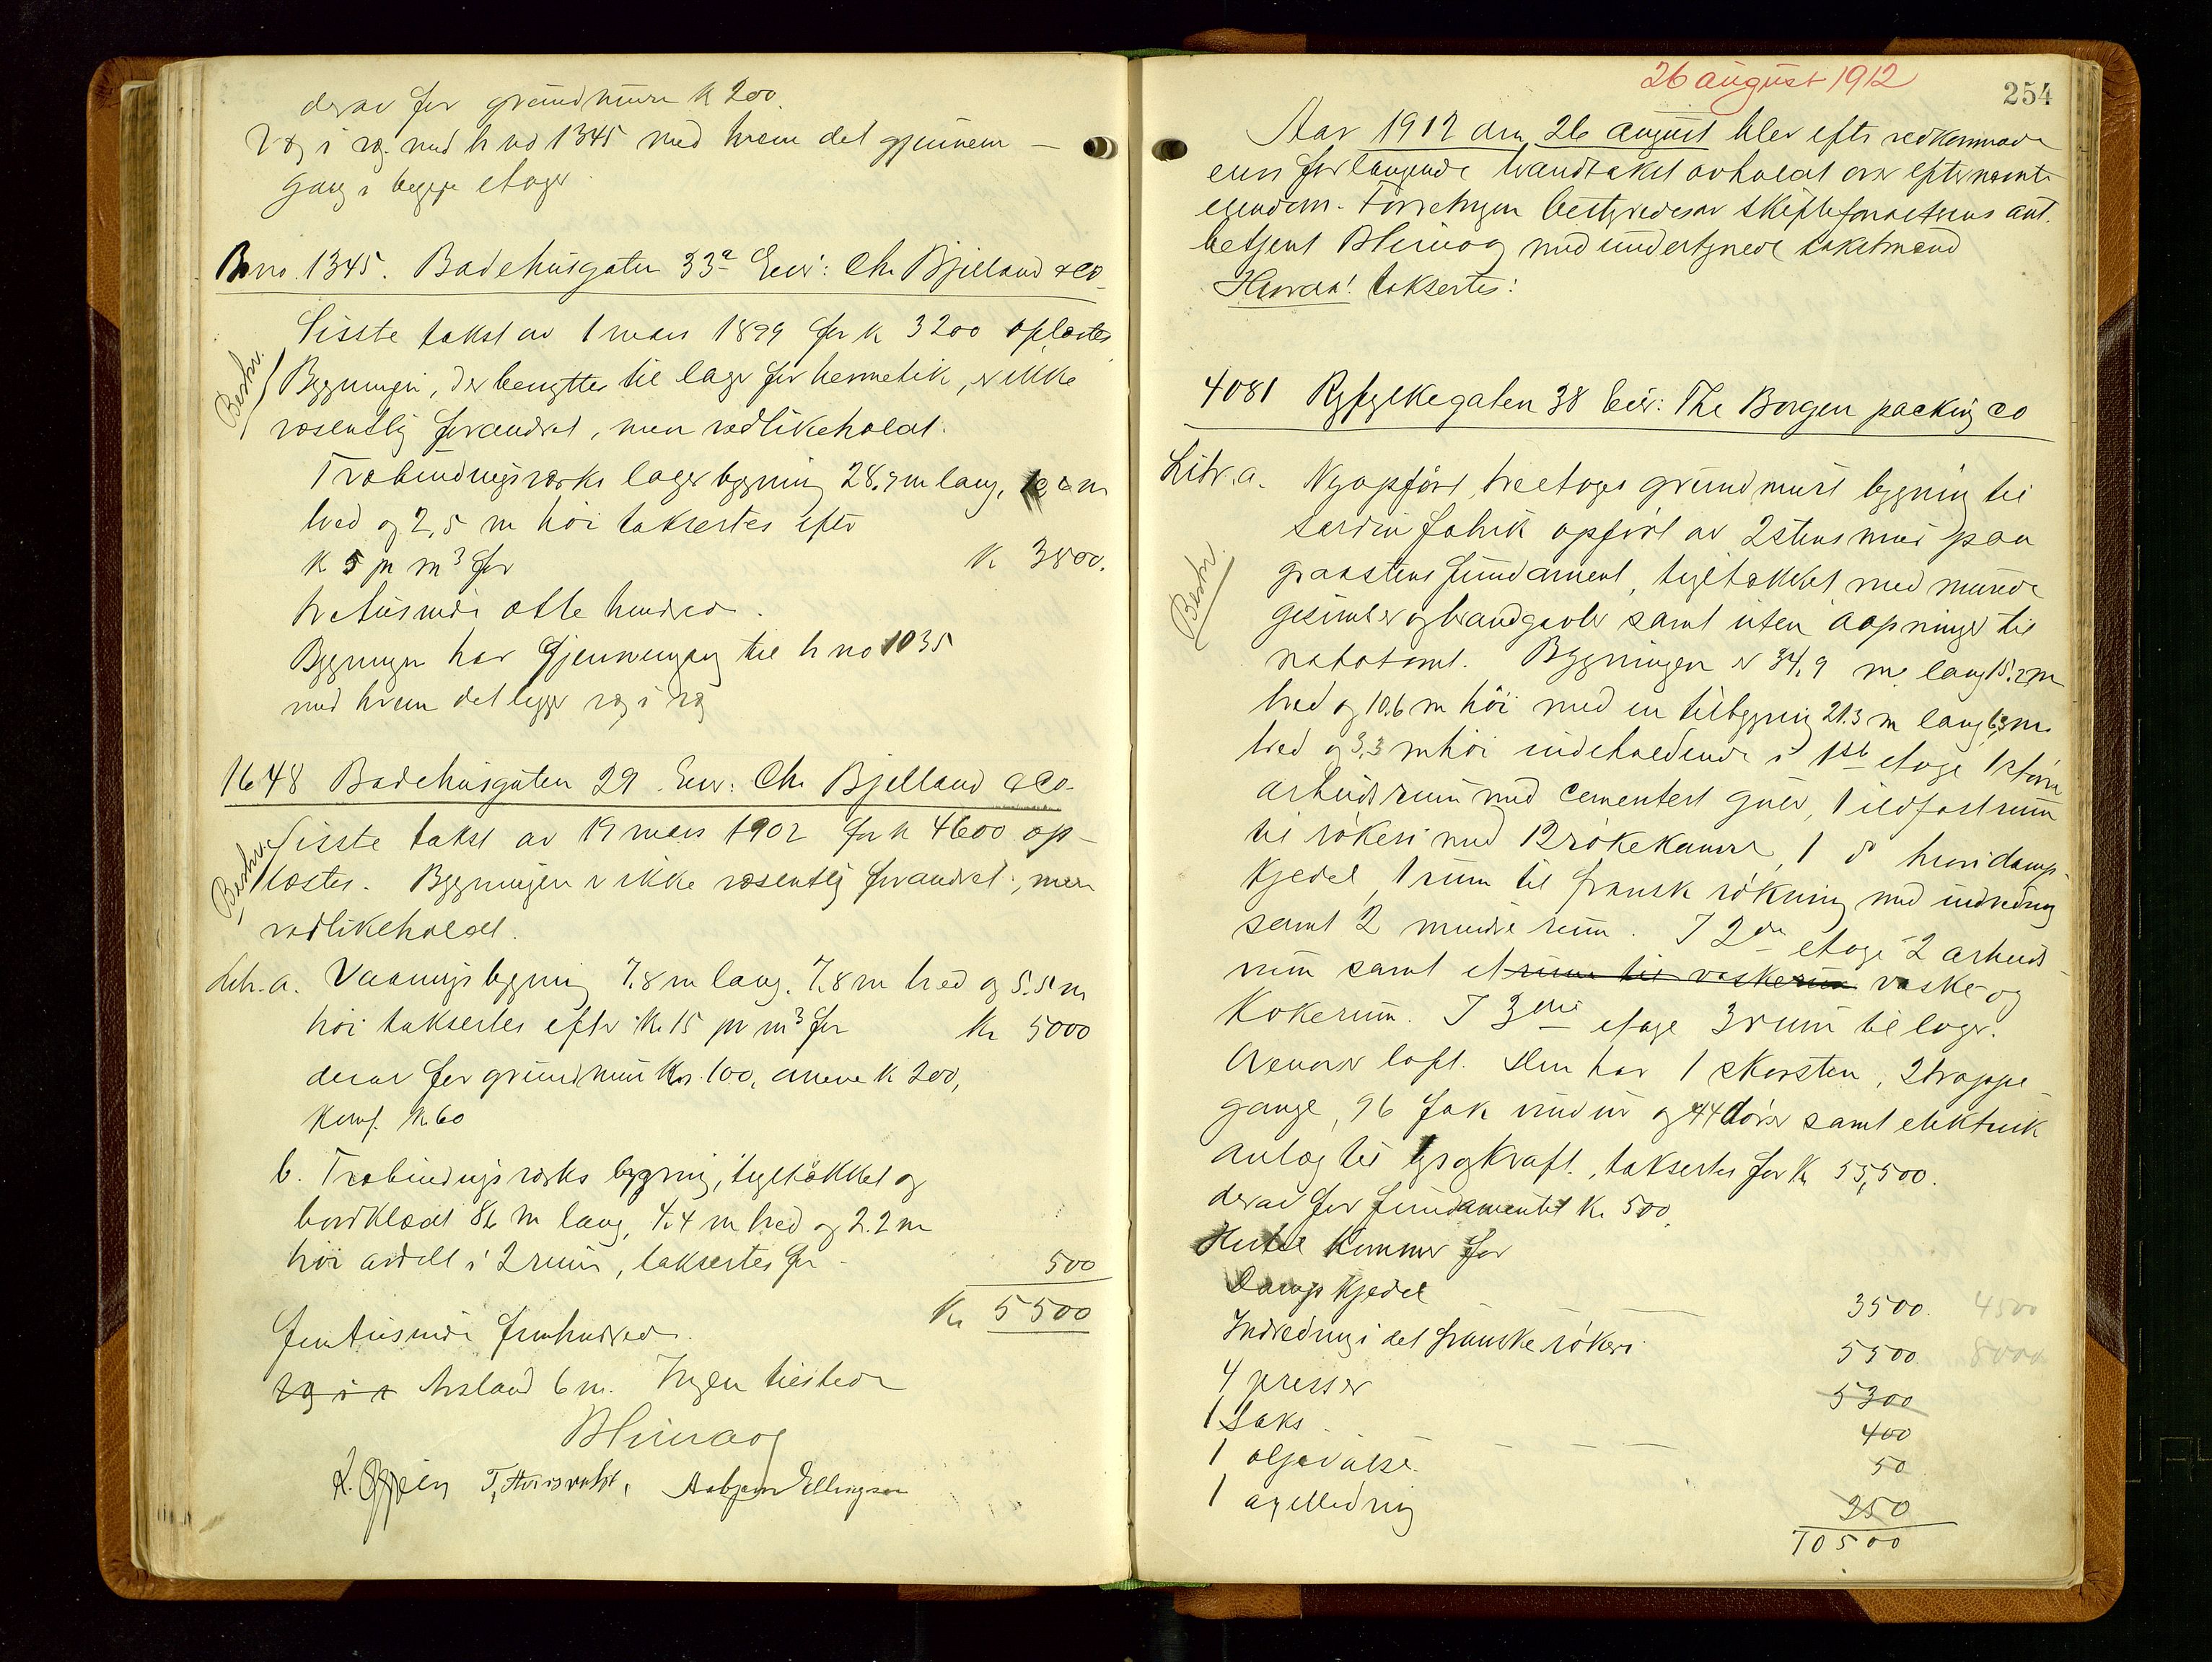 derav for grundmuren k 200.
væg i væg med h no 1345 med hvem det gjennem-
gang i begge etager.
B.no. 1345. Badehusgaten 33a Eier: Chr Bjelland & Co.
Siste takst av 1 mars 1899 for k 3200 oplæstes
Beskr.
Bygningen, der benyttes til lager for hermetik, er ikke
væsentlig forandret, men vedlikeholdt.
Træbindingsverks lagerbygning 28.9 m lang, m
bred og 2,5 m høi taksertes efter
k 5 pr m³ for k 3800.
tretusinde otte hundred.
Bygningen har gjennemgang til h no 1035
med hvem det ligger væg i væg
1648 Badehusgaten 29. Eier: Chr Bjelland & Co.
Beskr.
Siste takst av 19 mars 1902 for k 4600 op-
læstes. Bygningen er ikke væsentlig forandret, men
vedlikeholdt.
Litr. a. Vaaningsbygning 7.8 m lang. 7.8 m bred og 5.5 m
høi taksertes efter k 15 pr m³ for kr 5000
derav for grundmur kr. 100, ovnene k 200,
komf. k 60
b. Træbindingsverks bygning, tegltækket og
bordklædt 8.6 m lang, 4.4 m bred og 2.2 m
høi avdelt i 2 rum, taksertes for 500
Kr 5500
femtusinde femhundred.
væg i v Avstand 6 m. Ingen tilstede
Asbjørn Ellingsen
26 august 1912
254
Aar 1912 den 26 august blev efter vedkommende
eiers forlangende brandtakst avholdt over efternævnte
eiendom. Forretningen bestyredes av skifteforvalterens aut.
betjent med undertegnede takstmænd
Hvorda! taksertes:
4081 Ryfylkegaten 38 Eier: The Borgen packing Co
Litr. a. Nyopført, treetages grundmurt bygning til
Beskr.
sardinfabrik opført av 2 stens mur paa
graastens fundament, tegltækket med murede
gesimser og brandgavler samt uten aapninger til
nabotomt. Bygningen er 34,9 m lang 15.2 m
bred og 10.6 m høi med en tilbygning 21.3 m lang 6.3 m
bred og 3,3 m høi indeholdende i 1ste etage 1 stort
arbeidsrum med cementert gulv, 1 ildfast rum
til røkeri med 12 røkekamre, 1 do hvori damp-
kjedel, 1 rum til fransk røkning med indredning
samt 2 mindre rum. I 2den etage 2 arbeids-
rum samt et rum til vaskerum vaske- og
kokerum. I 3die etage 3 rum til lager.
Ovenover loft. Den har 1 skorsten, 2 trappe-
gange, 96 fak vinduer og 44 dører samt elektrisk
anlæg til lys og kraft, taksertes for k 55,500.
derav for fundamentet k. 500.
Hertil kommer for
Dampkjedel 3500. 4500
Indredning i det franske røkeri 5500 8000
4 presser 5300
1 saks 400
1 oljevalse 50
1 axelledning 250
70500